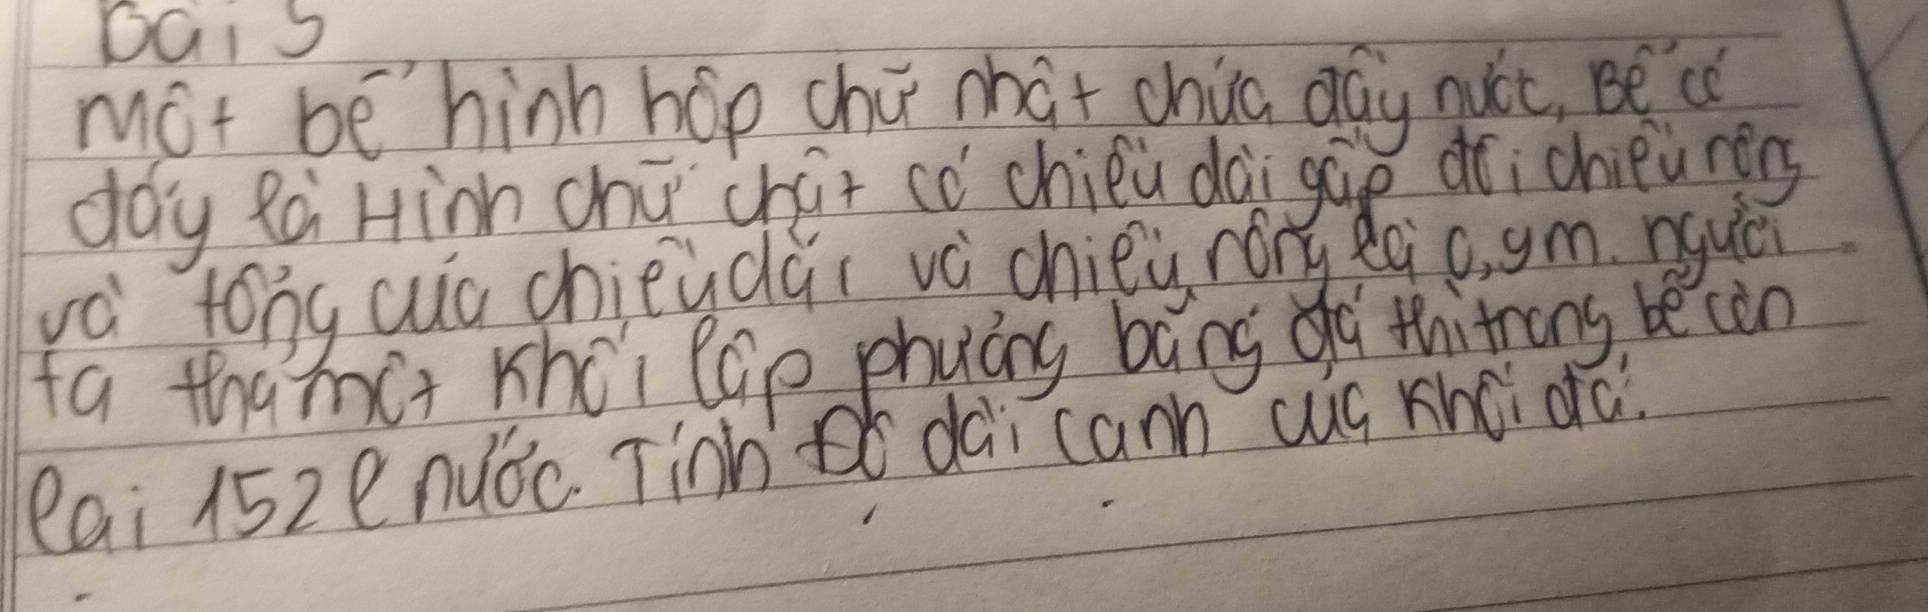 Bài 5
Một bể hình hộp chữ nhật chứa đầy nước, Bể có
đáy là Hình chữ chật có chiều dài gấp đôi chiều rộng
và tổng của chiều dài và chiều rộng là 0,9m. người
ta thả một khối lập phương bằng đá thì trong bể còn
lại 152l nước. Tính độ dài cạnh của khối đá.